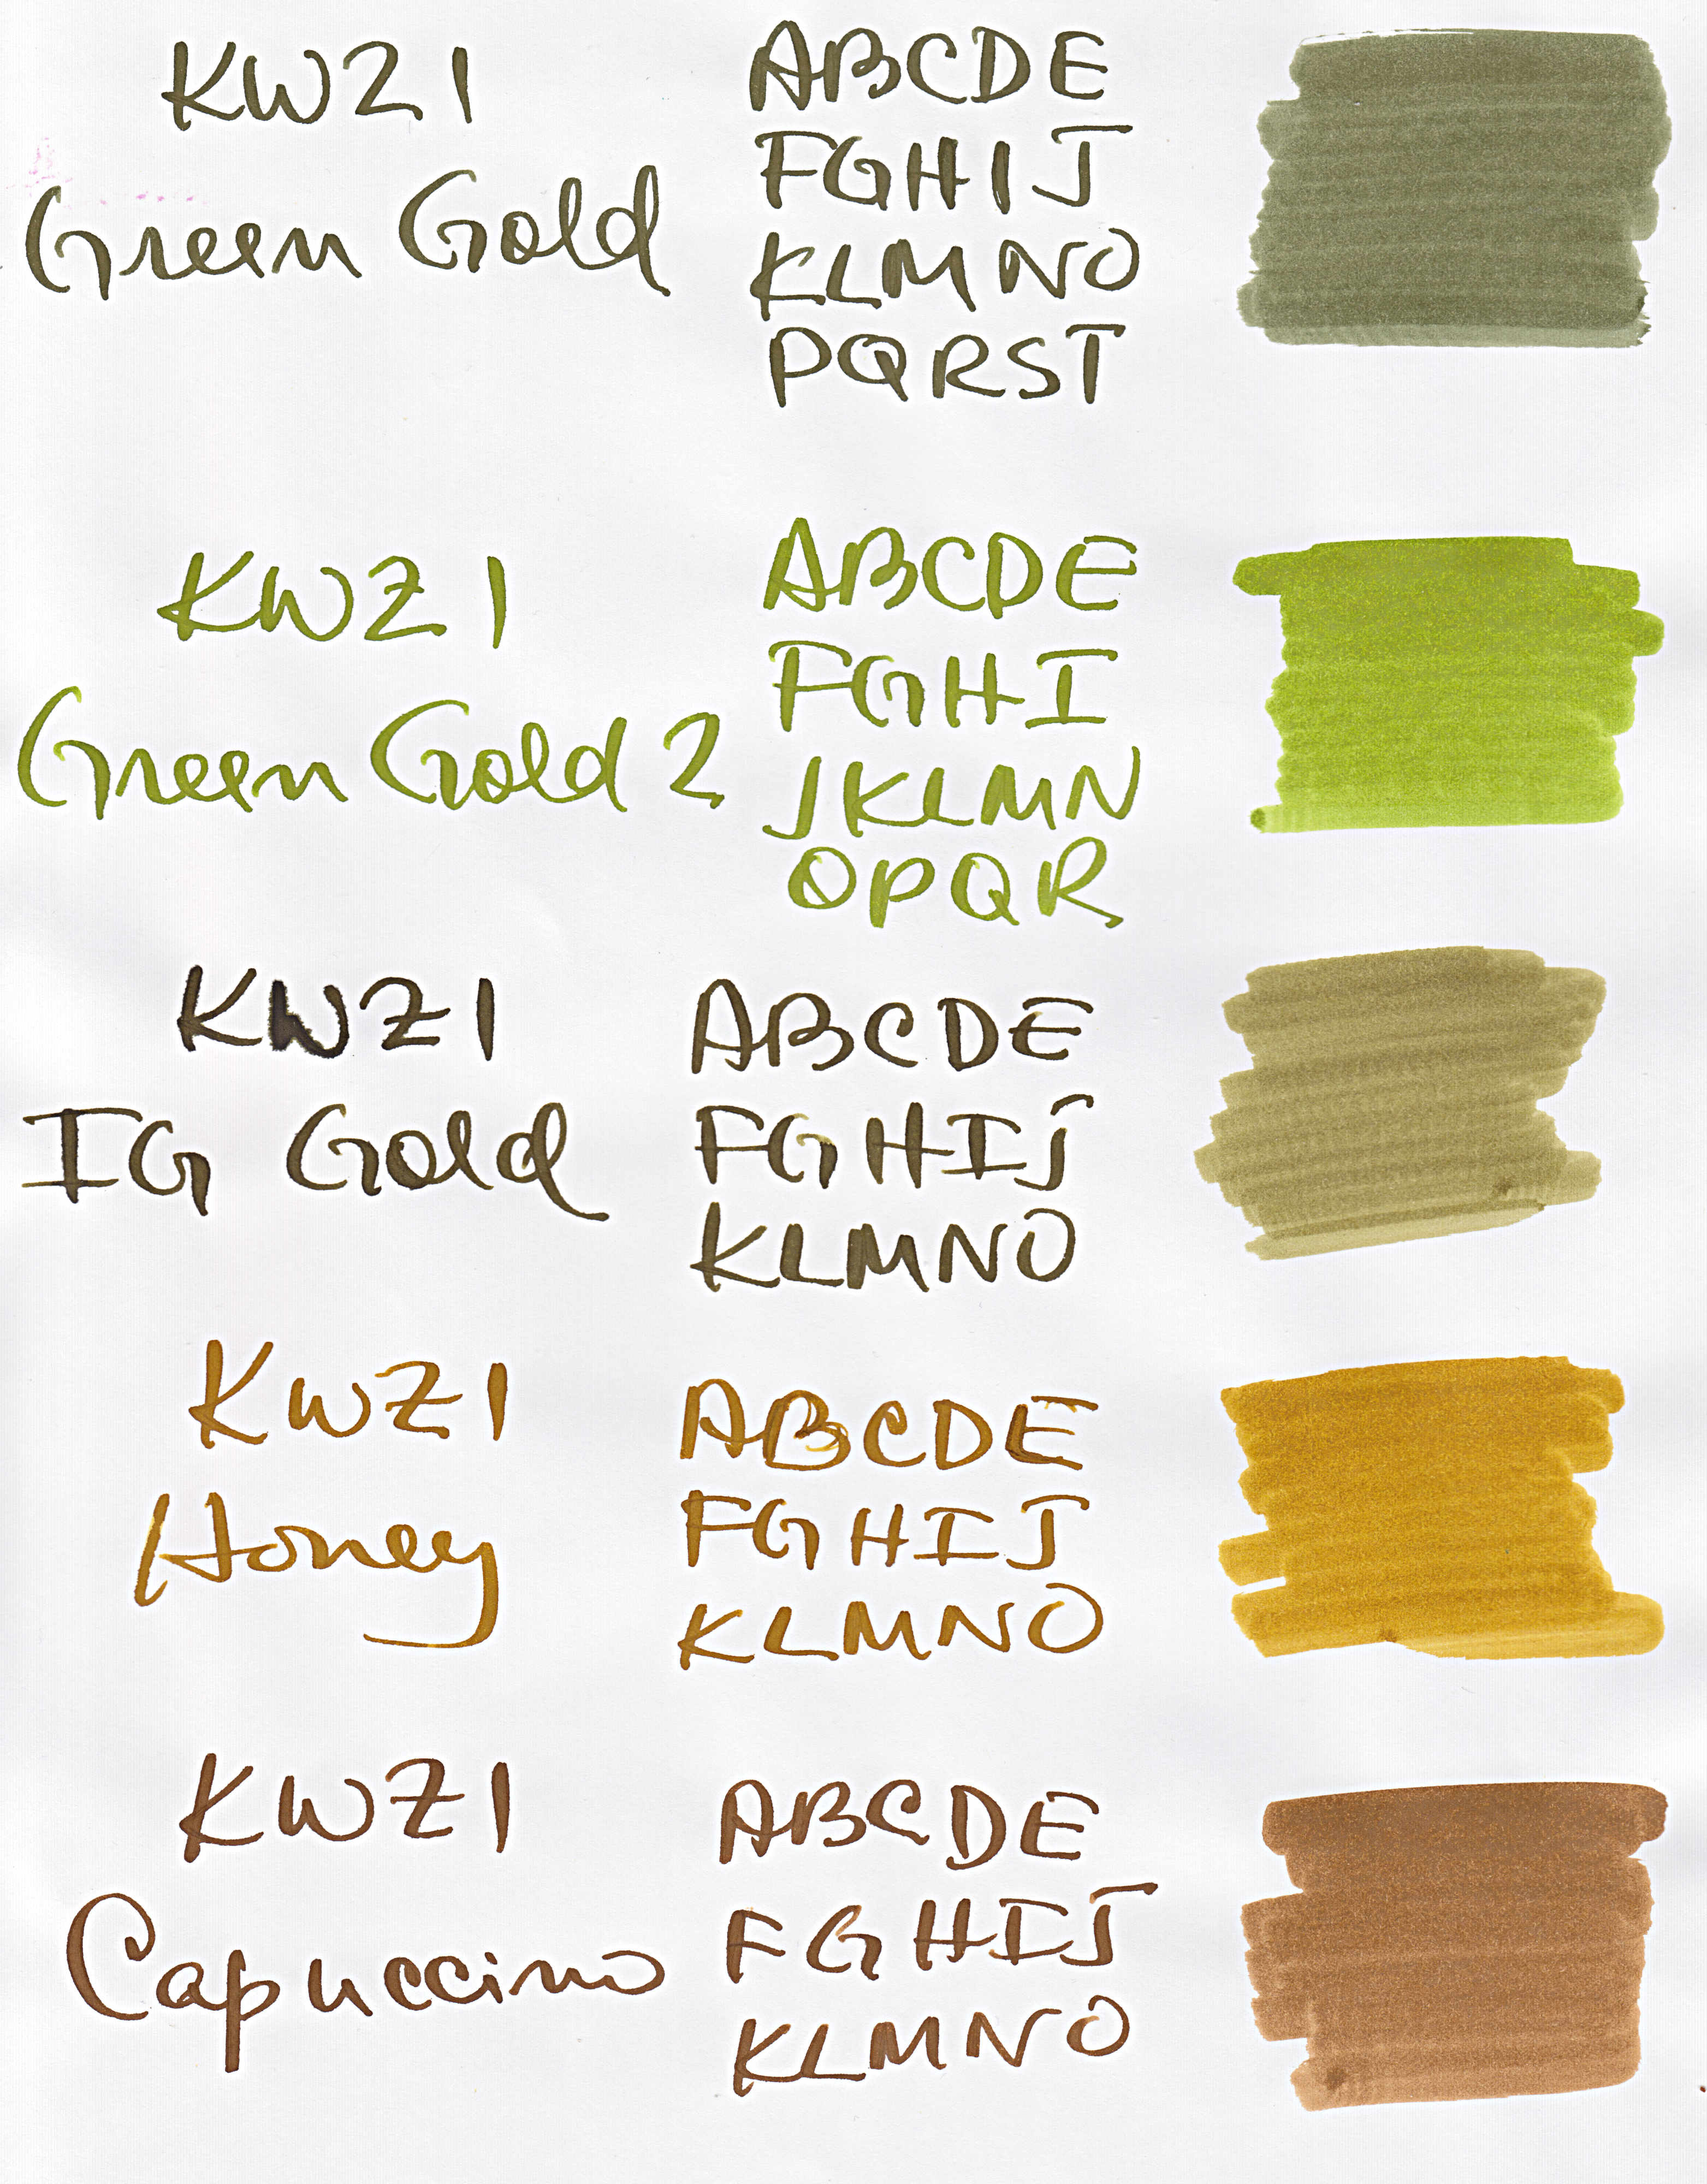 KWZI
Green Gold
ABCDE
FGHIJ
KLMNO
PQRST
KWZI
Green Gold 2
ABCDE
FGHI
JKLMN
OPQR
KWZI
IG Gold
ABCDE
FGHIJ
KLMNO
KWZI
Honey
ABCDE
FGHIJ
KLMNO
KWZI
Capuccino
ABCDE
FGHIJ
KLMNO